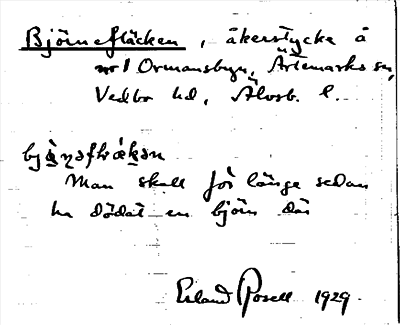 Björnefläcken, åkerstycke å
nr 1 Ormansbyn, Ärtemarks sn,
Vedbo hd, Älvsb. l.
Man skall för länge sedan
ha dödat en björn där
Erland Rosell 1929.